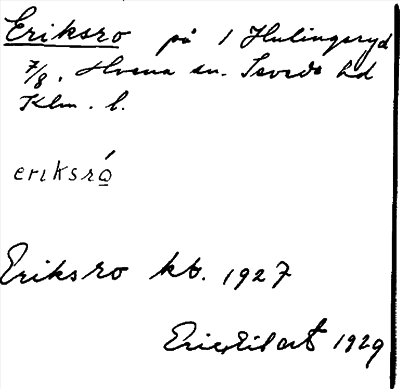 Eriksro på 1 Hulingsryd
7/8, Hvena sn. Sevede hd
Klm. l.
eriksró̱
Eriksro kb. 1927
Eric Eilert 1929